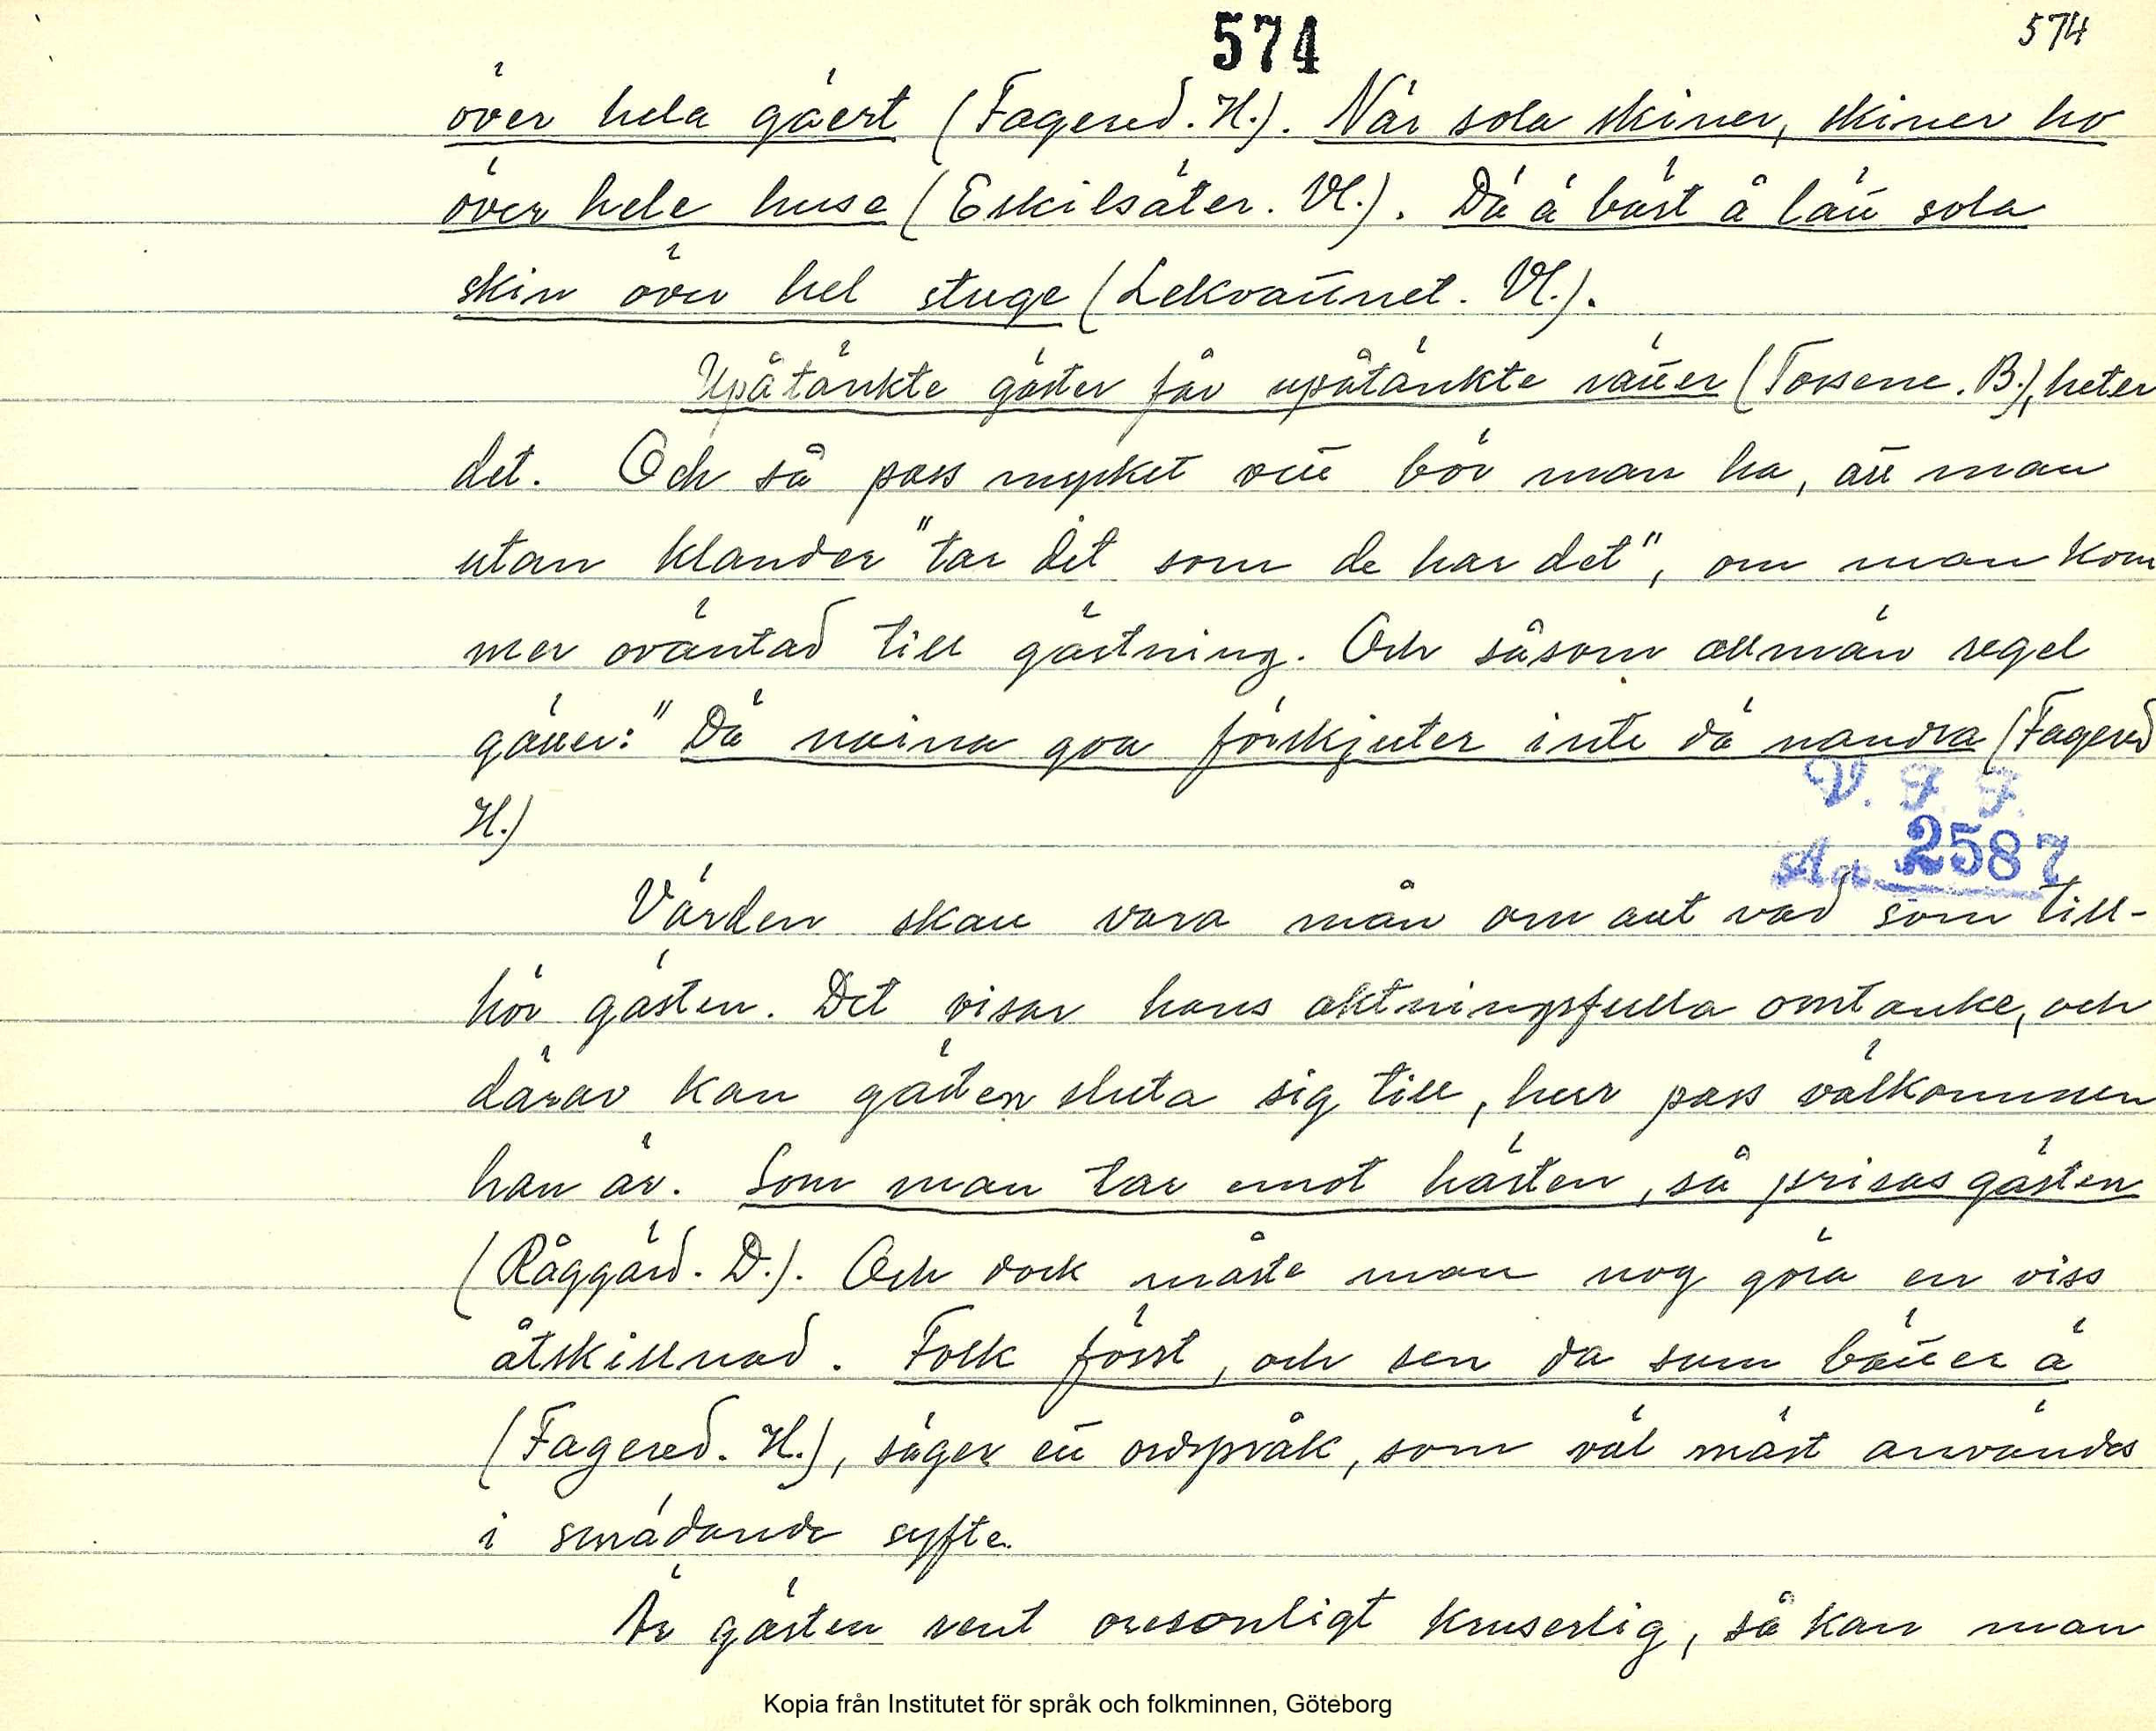 574
574
över hela gäert (Fagered. H.). När sola skiner, skiner ho
över hele huse (Eskilsäter. Vl.). Dä ä bäst å lätt sola
skin över hel stuge (Lekvattnet. Vl.).
Upåtänkte gäster får upåtänkte rätter (Tossene. B.), heter
det. Och så pass mycket vett bör man ha, att man
utan klander "tar det som de har det", om man kom
mer oväntad till gästning. Och såsom allmän regel
gäller: "Dä naina goa förskjuter inte dä nandra (Fagered
H.)
V. F. F.
Aa 2587
Värden skall vara mån om allt vad som till-
hör gästen. Det visar hans aktningsfulla omtanke, och
därav kan gästen sluta sig till, hur pass välkommen
han är. Som man tar emot hästen, så prisas gästen
(Råggärd. D.). Och dock måste man nog göra en viss
åtskillnad. Folk först, och sen da sum bätter ä
(Fagered. H.), säger ett ordspråk, som väl mäst användes
i smädande syfte.
Är gästen rent oresonligt kruserlig, så kan man
Kopia från Institutet för språk och folkminnen, Göteborg